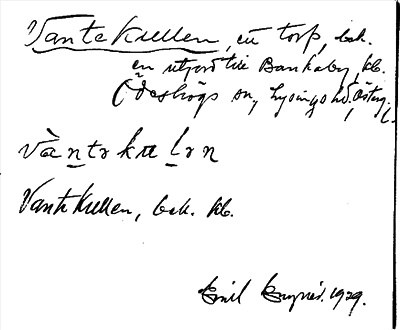 Vantekullen, ett torp, bek.
en utjord till Bankaby, kb.
Ödeshögs sn, Lysings hd, Östergl.
và n tə ku l ə n
Vantekullen, bek. kb.
Emil 1929.